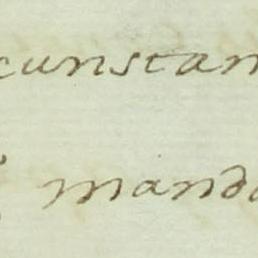 cunstan
mando